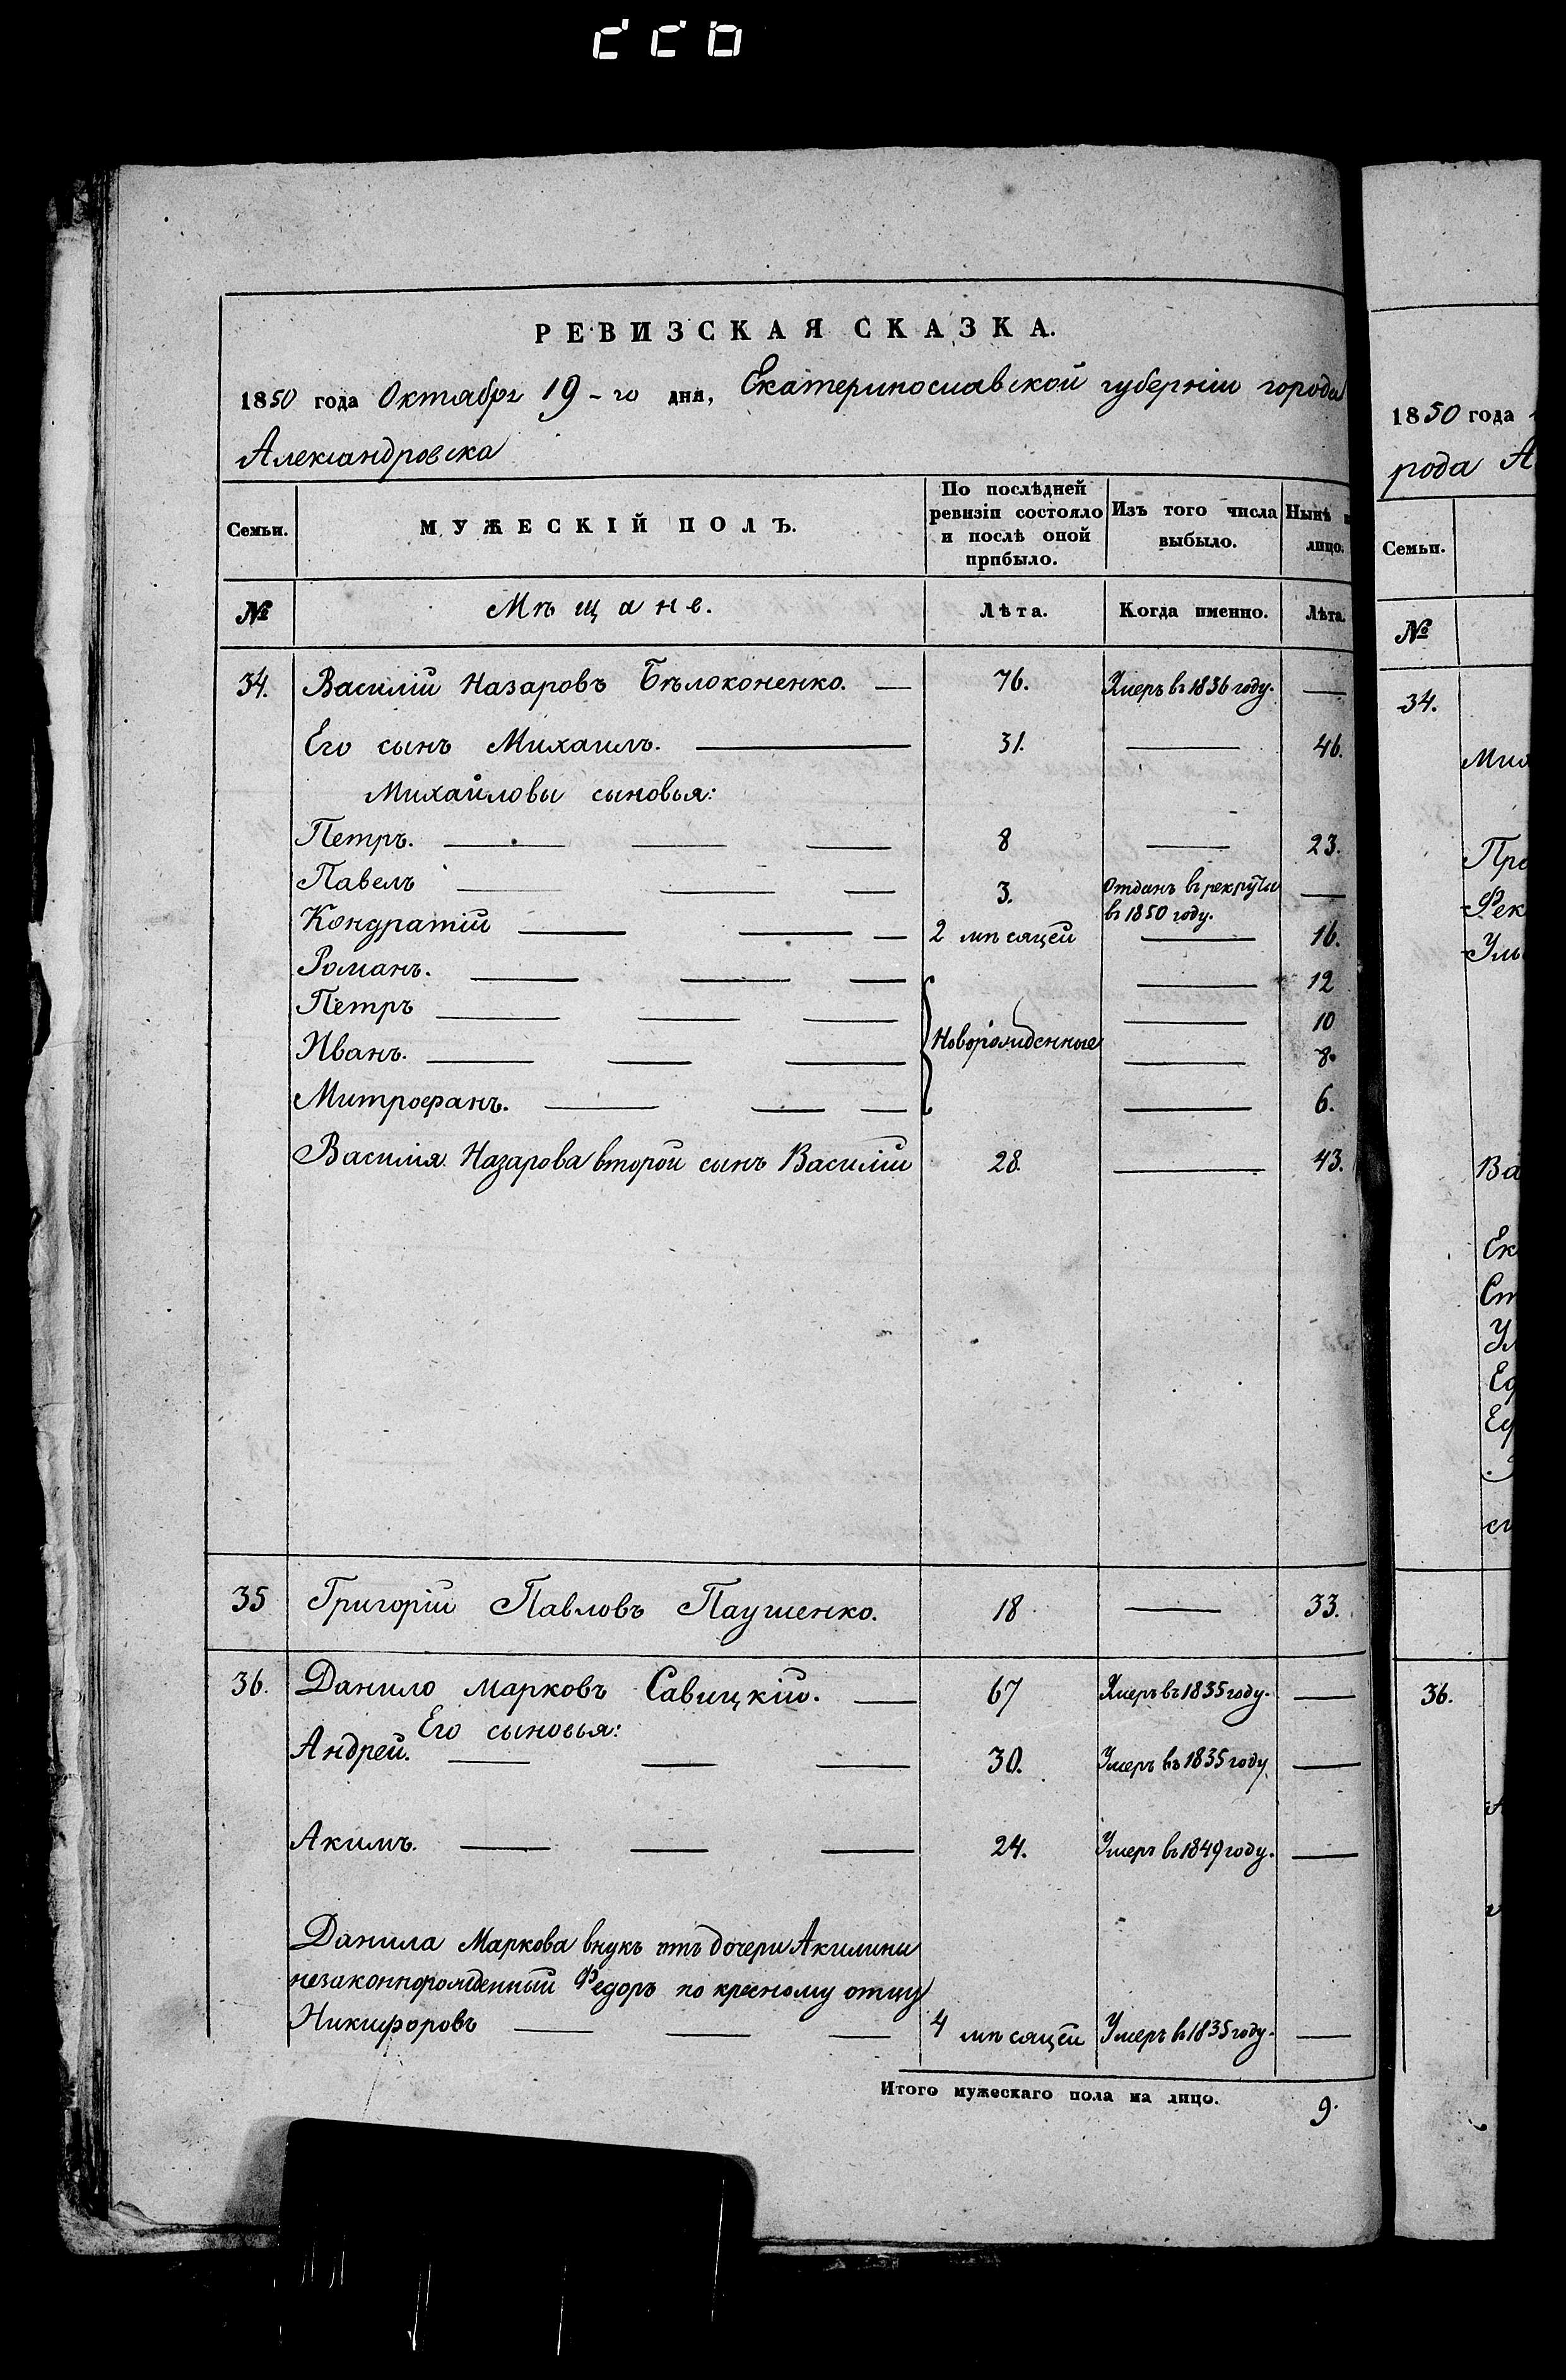 РЕВИЗСКАЯ СКАЗКА.
1850 года Октября 19-го дня, Екатеринославской губерніи города
Александровска
Семьи.
МУЖЕСКІЙ ПОЛЪ.
По послѣдней ревизіи состояло и послѣ оной прибыло.
Изъ того числа выбыло.
Нынѣ лицо.
№ Мѣщане. Лѣта. Когда именно. Лѣта.
34. Василій Назаровъ Бѣлоконенко. — 76. Умеръ въ 1836 году. —
Его сынъ Михаилъ. — 31. — 46.
Михайловы сыновья:
Петръ. — 8 — 23.
Павелъ — 3. Отданъ въ рекруты въ 1850 году. —
Кондратій — 2 мѣсяцей — 16.
Романъ. — 12
Петръ — 10
Новорожденные
Иванъ. — 8.
Митрофанъ. — 6.
Василія Назарова второй сынъ Василій 28. — 43.
35 Григорій Павловъ Паушенко. 18 — 33.
36. Данило Марковъ Савицкій. — 67 Умеръ въ 1835 году. —
Его сыновья:
Андрей. — 30. Умеръ въ 1835 году —
Акимъ. — 24. Умеръ въ 1849 году. —
Данила Маркова внукъ отъ дочери Акилины
незаконнорожденный Федоръ по кресному отцу
Никифоровъ — 4 мѣсяцей Умеръ въ 1835 году. —
Итого мужескаго пола на лицо. 9.
1850 года
рода А
Семьи.
№
34.
Мих
Ва
Ек
36.